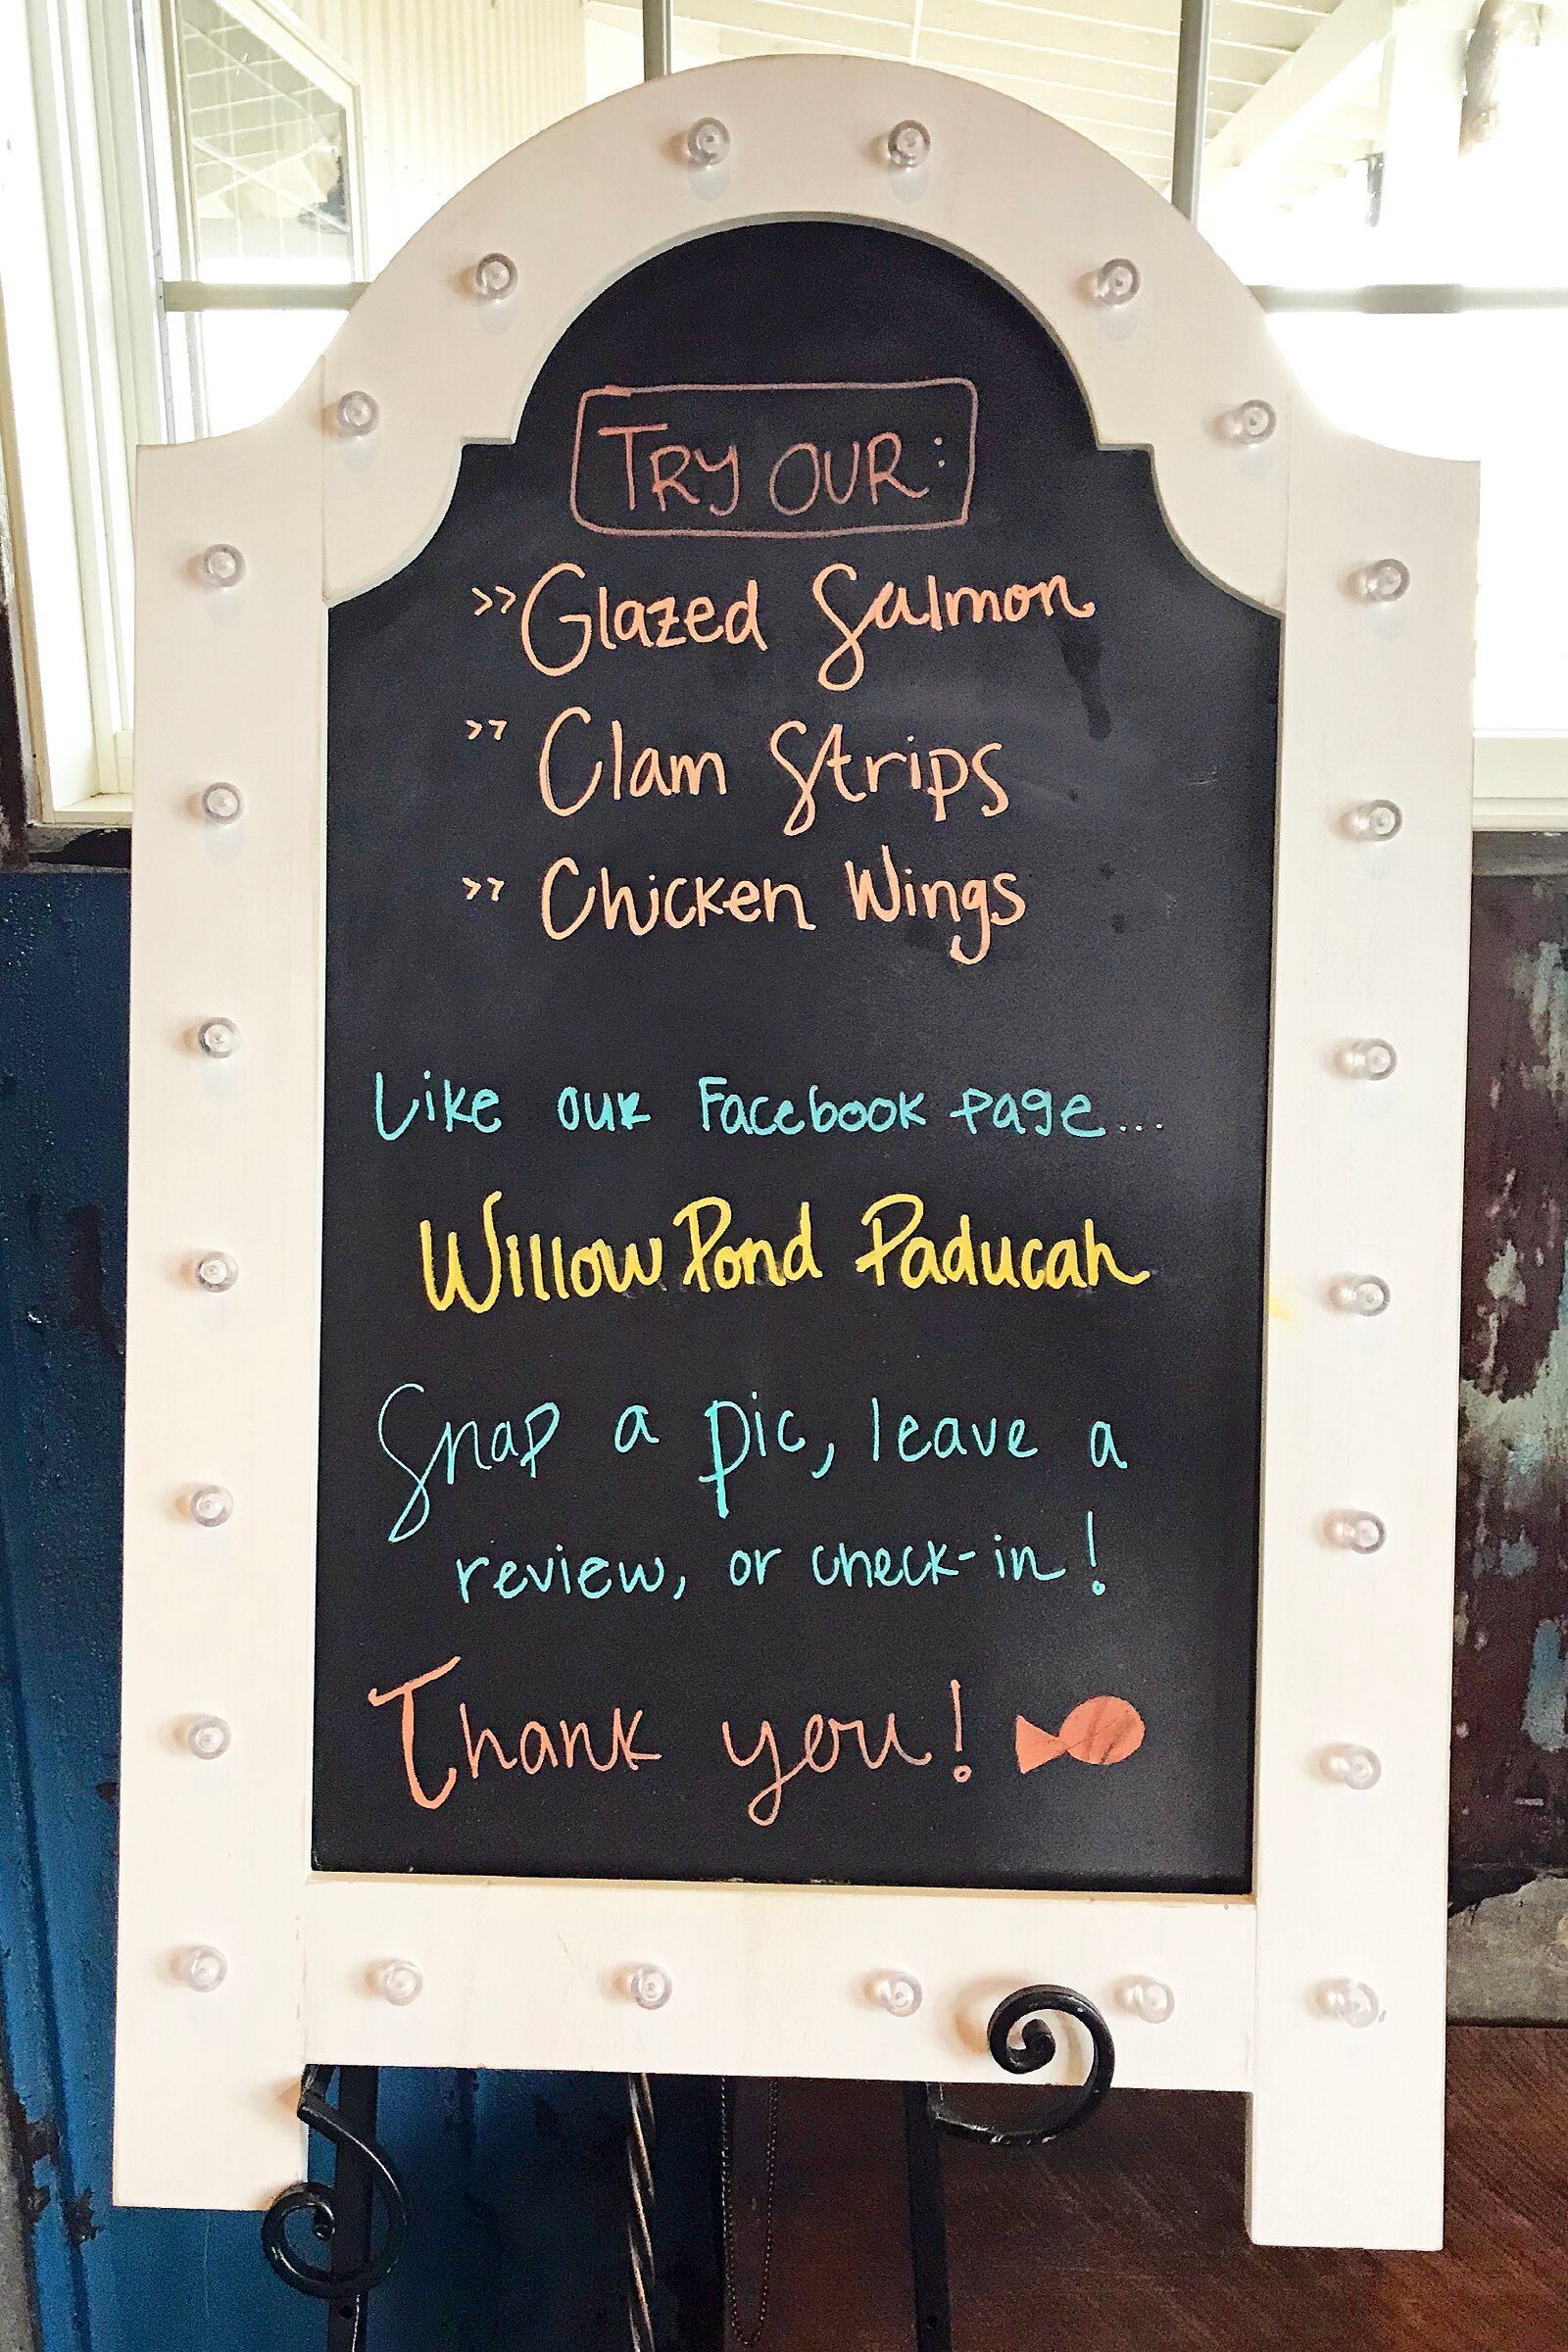 TRY OUR:
>> Glazed Salmon
>> Clam Strips
>> Chicken Wings
Like our Facebook page...
Willow Pond Paducah
Snap a pic, leave a
review, or check-in!
Thank you!